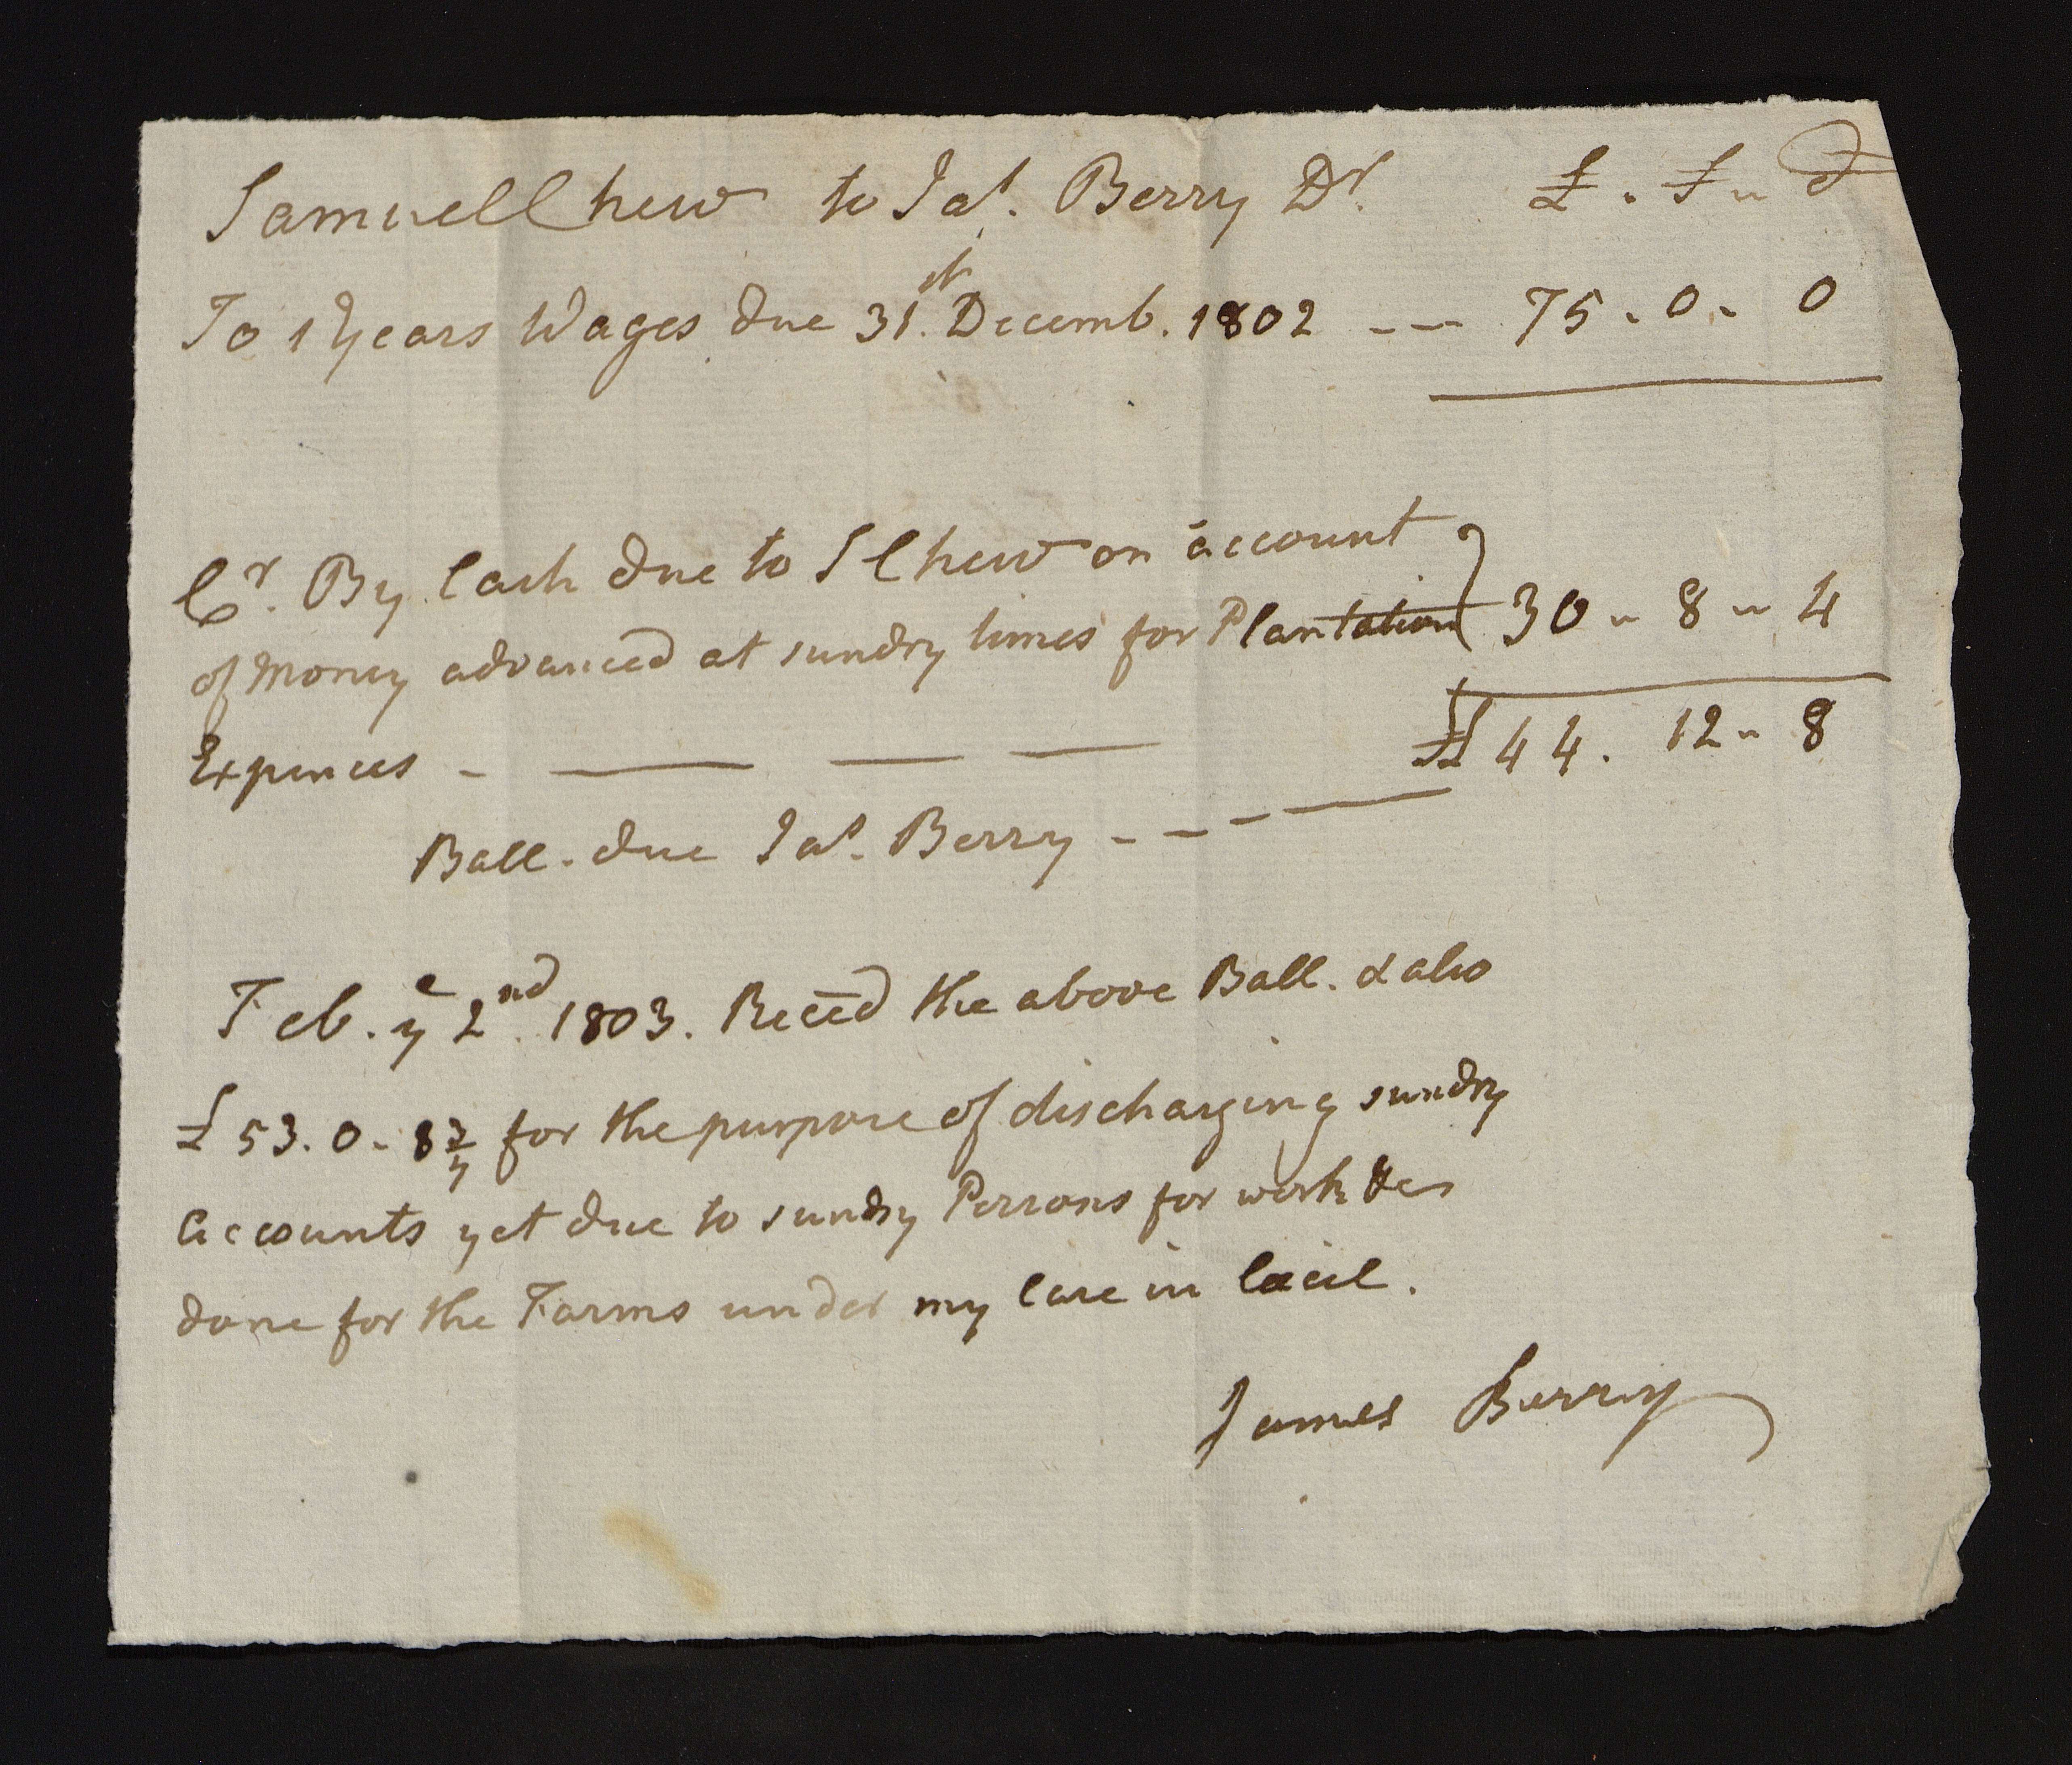 Samuel Chew to Jas. Berry Dr. £ . S " D
To 1 Years Wages due 31st. Decemb. 1802 --- 75 . 0 . 0
Cr. By Cash due to S Chew on account
of Money advanced at sundry times for Plantation } 30 " 8 " 4
Expences - — — — £ 44 . 12 " 8
Ball. due Jas. Berry - - - —
Feb. ye 2nd. 1803. Reced the above Ball. & also
£ 53. 0 - 8 3/4 for the purpose of discharging sundry
accounts yet due to sundry Persons for work &c
done for the Farms under my Care in Cecil.
James Berry